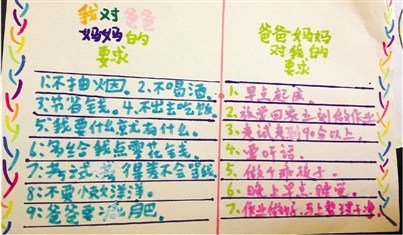 我对爸爸
妈妈的
要求
1.不抽烟。2.不喝酒。
3.节省钱。4.不出去吃饭。
5.我要什么就有什么。
6.多给我点零花钱。
7.考试考得差不会骂我。
8.不要小妹妹
9.爸爸要减肥
爸爸妈妈
对我的
要求
1.早点起床。
2.放学回来立刻做作业
3.考试考到90分以上。
4.要听话。
5.做个乖孩子。
6.晚上早点睡觉。
7.作业做好,马上整理干净